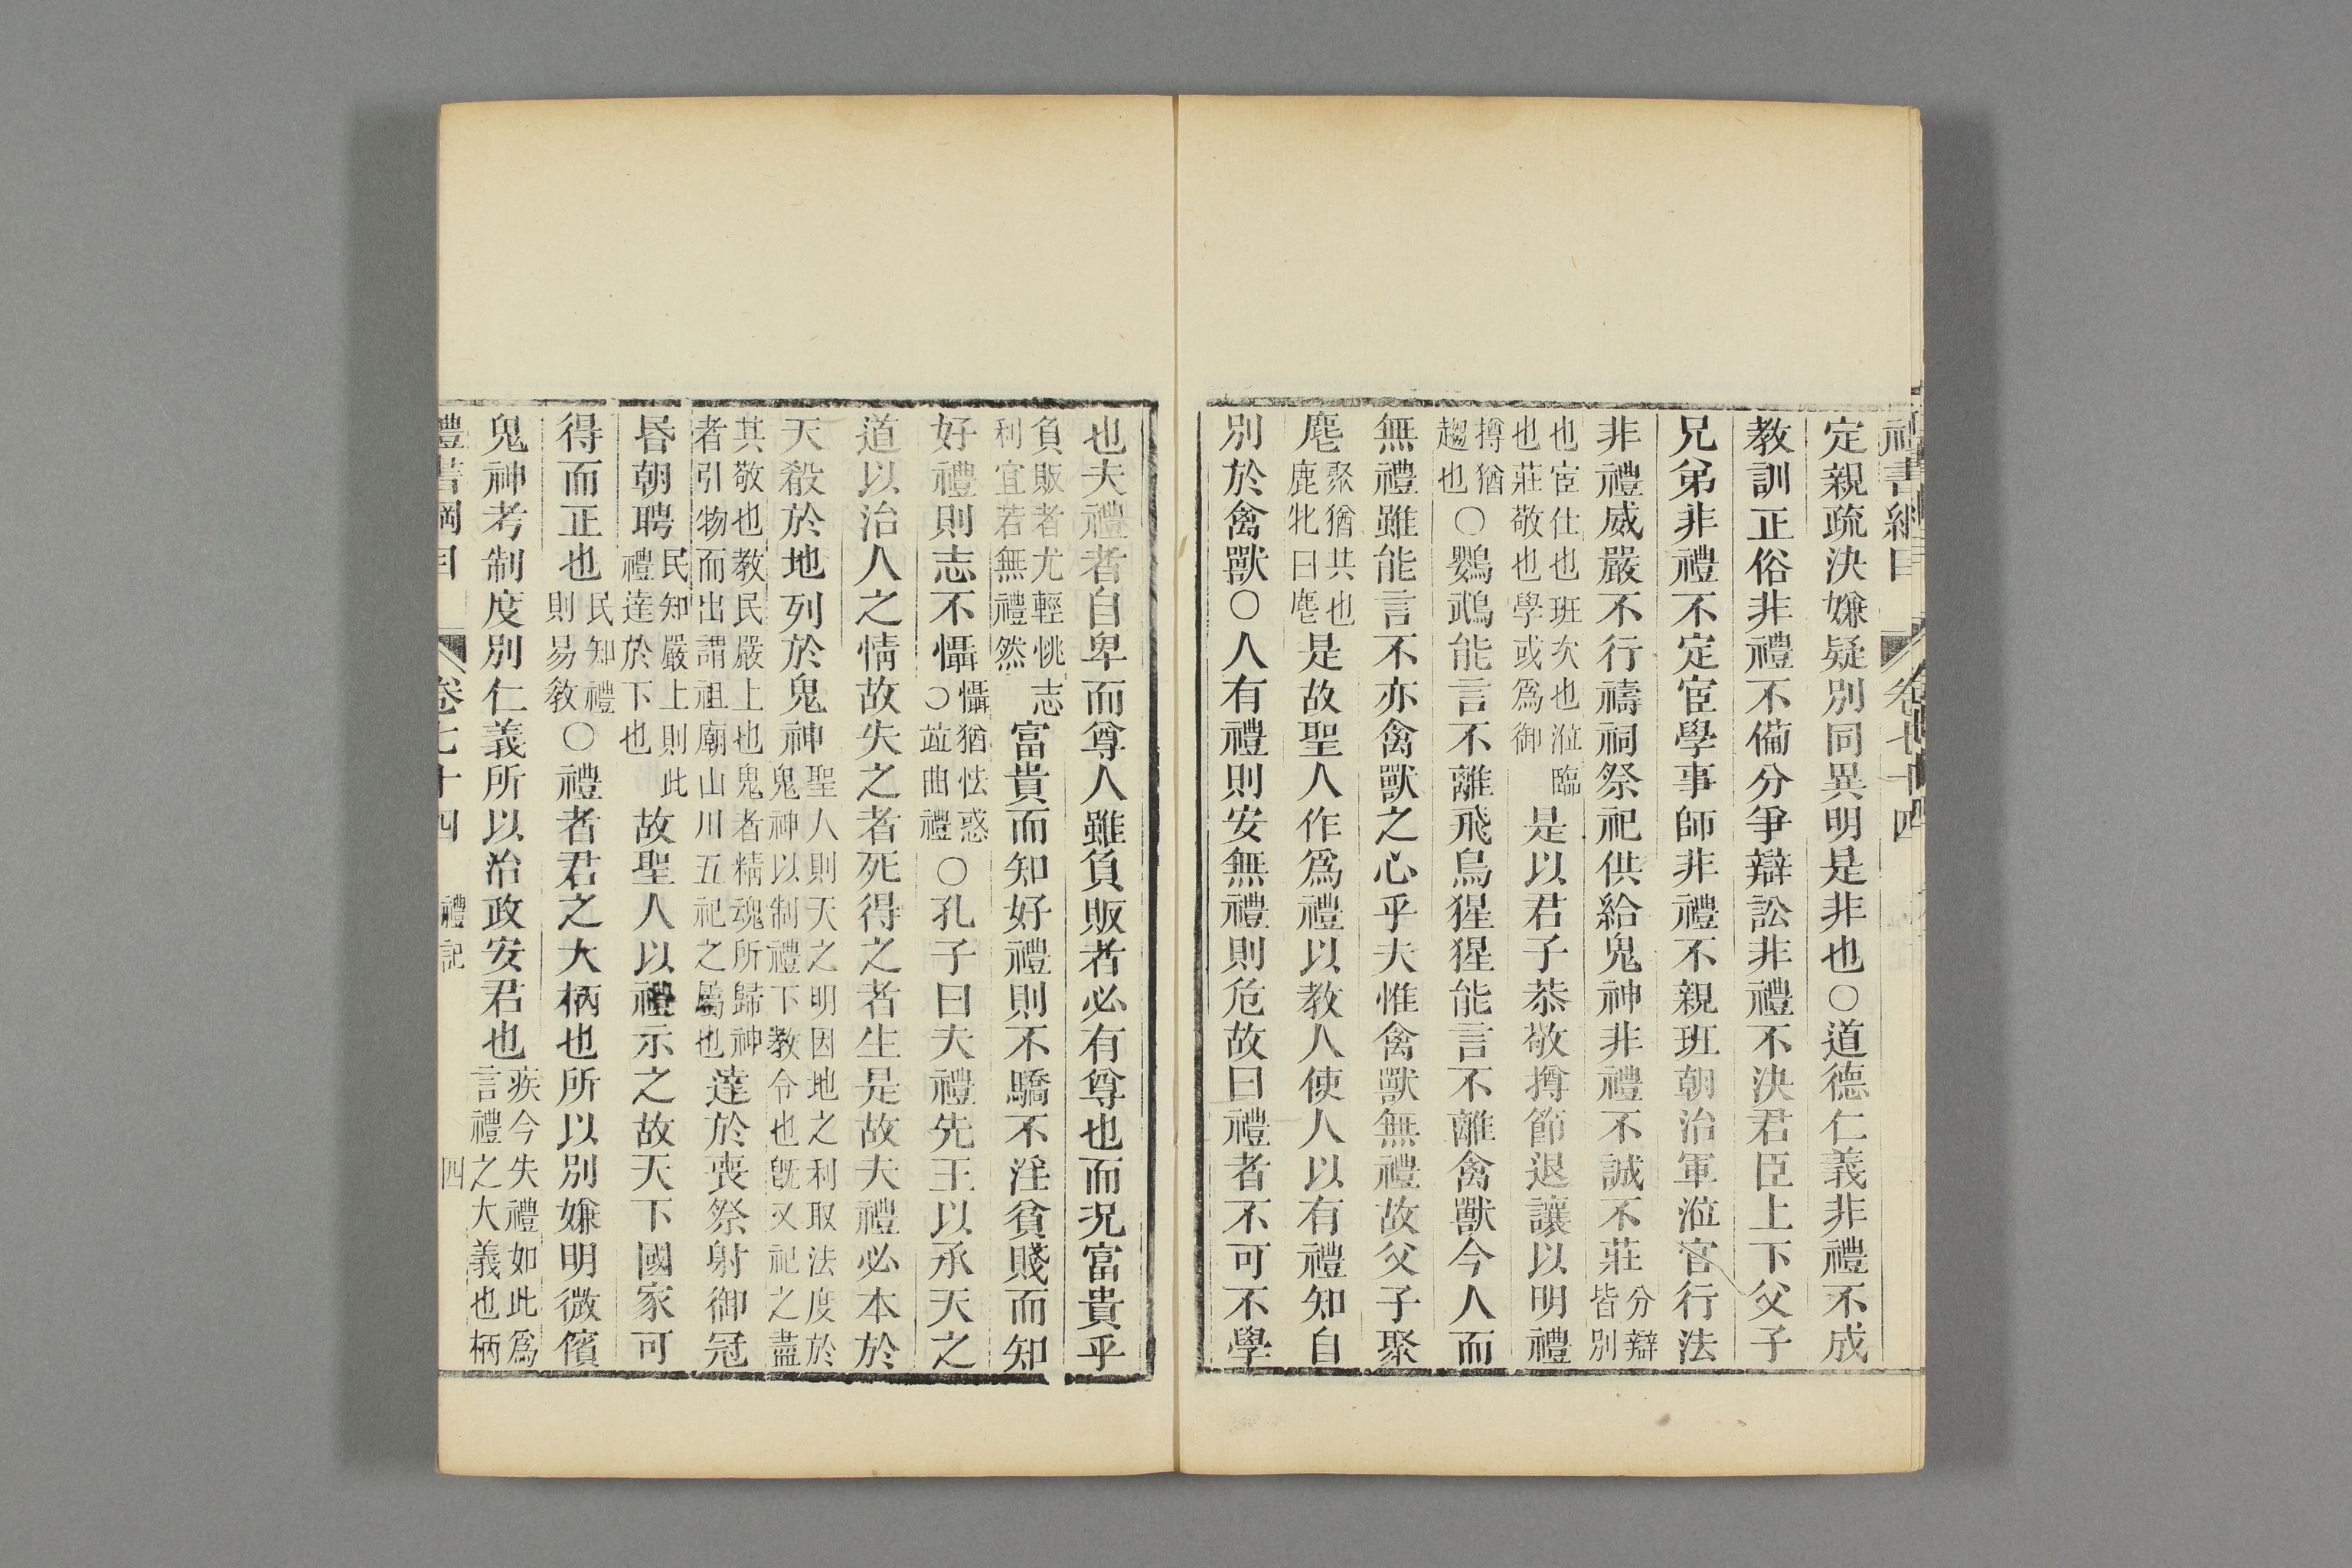 禮書綱目 卷七十四
定親疏決嫌疑別同異明是非也○道德仁義非禮不成
教訓正俗非禮不備分爭辯訟非禮不決君臣上下父子
兄弟非禮不定宦學事師非禮不親班朝治軍涖官行法
非禮威嚴不行禱祠祭祀供給鬼神非禮不誠不莊分辯皆別
也宦仕也班次也涖臨也莊敬也學或爲御是以君子恭敬撙節退讓以明禮
撙猶趨也○鸚鵡能言不離飛鳥猩猩能言不離禽獸今人而
無禮雖能言不亦禽獸之心乎夫惟禽獸無禮故父子聚
麀聚猶共也鹿牝曰麀是故聖人作爲禮以教人使人以有禮知自
別於禽獸○人有禮則安無禮則危故曰禮者不可不學
也夫禮者自卑而尊人雖負販者必有尊也而況富貴乎
負販者尤輕恌志利宜若無禮然富貴而知好禮則不驕不淫貧賤而知
好禮則志不懾懾猶怯惑○竝曲禮○孔子曰夫禮先王以承天之
道以治人之情故失之者死得之者生是故夫禮必本於
天殽於地列於鬼神聖人則天之明因地之利取法度於鬼神以制禮下教令也旣又祀之盡
其敬也教民嚴上也鬼者精魂所歸神者引物而出謂祖廟山川五祀之屬也達於喪祭射御冠
昬朝聘民知嚴上則此禮達於下也故聖人以禮示之故天下國家可
得而正也民知禮則易敎○禮者君之大柄也所以別嫌明微儐
鬼神考制度別仁義所以治政安君也疾今失禮如此爲言禮之大義也柄
禮書綱目 卷七十四 禮記 四